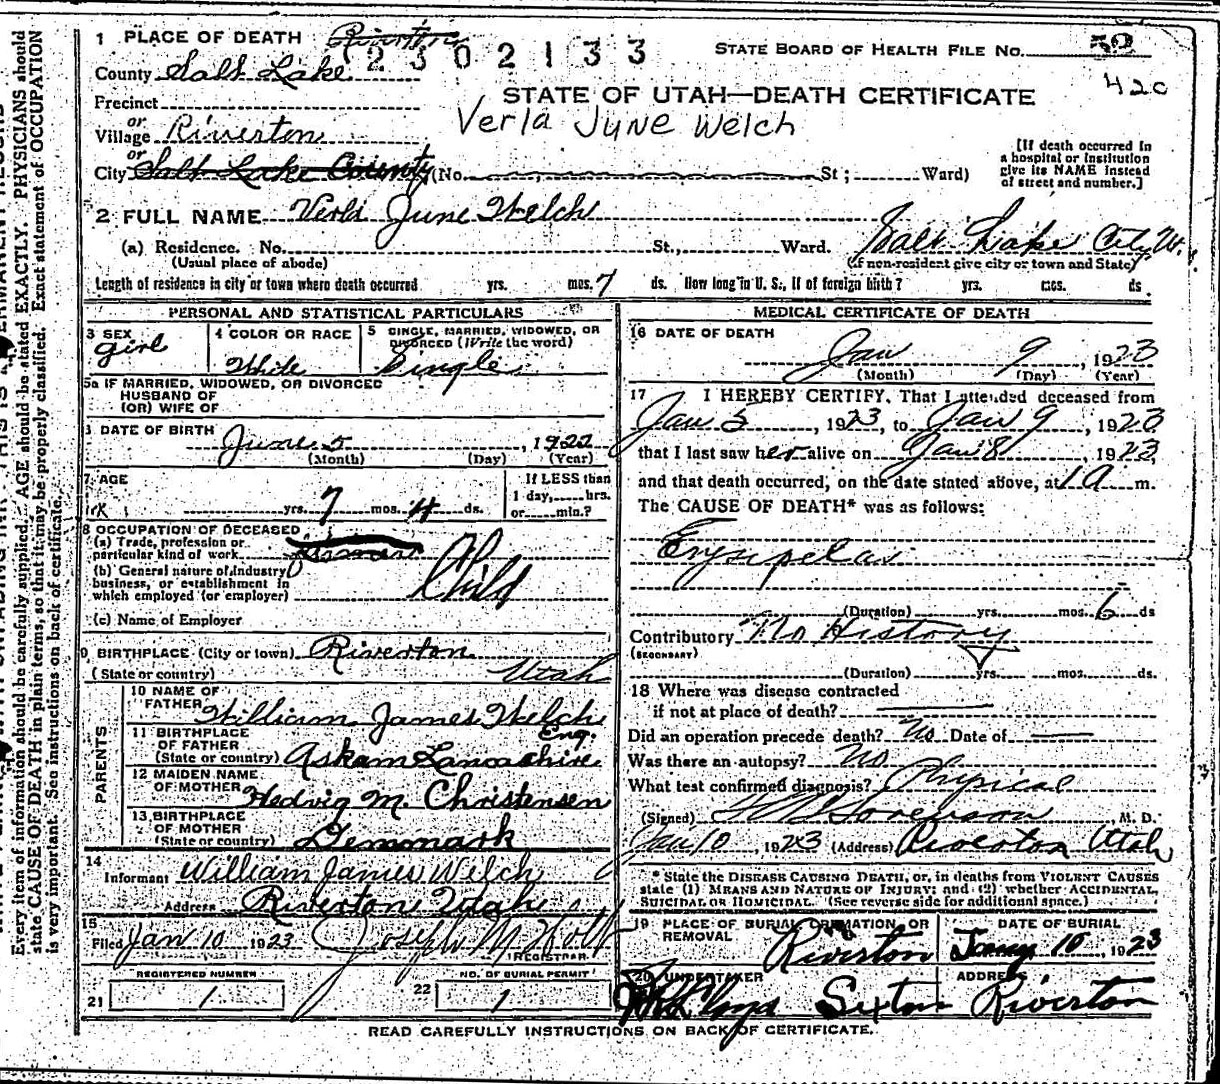 1 PLACE OF DEATH Riverton
2302133
STATE BOARD OF HEALTH FILE NO. 52
420
County Salt Lake
STATE OF UTAH—DEATH CERTIFICATE
Precinct
Verla June Welch
or
Village Riverton
or
City Salt Lake County (No. St; Ward)
[If death occurred in
a hospital or institution
give its NAME instead
of street and number.]
2 FULL NAME Verla June Welch
(a) Residence. No. St., Ward. Salt Lake City Ut.
(Usual place of abode) (If non-resident give city or town and State)
Length of residence in city or town where death occurred yrs. mos. 7 ds. How long in U. S., if of foreign birth? yrs. mos. ds.
PERSONAL AND STATISTICAL PARTICULARS
3 SEX
girl
4 COLOR OR RACE
White
5 SINGLE, MARRIED, WIDOWED, OR
DIVORCED (Write the word)
Single
5a IF MARRIED, WIDOWED, OR DIVORCED
HUSBAND OF
(OR) WIFE OF
DATE OF BIRTH
June 5, 1922
(Month) (Day) (Year)
7 AGE
yrs. 7 mos. 4 ds.
If LESS than
1 day, hrs.
or min.?
8 OCCUPATION OF DECEASED
(a) Trade, profession or
particular kind of work
(b) General nature of industry
business, or establishment in
which employed (or employer)
Child
(c) Name of Employer
9 BIRTHPLACE (City or town) Riverton
(State or country) Utah
PARENTS
10 NAME OF
FATHER William James Welch
11 BIRTHPLACE
OF FATHER
(State or country) Askam Lancashire Eng.
12 MAIDEN NAME
OF MOTHER Hedvig M. Christensen
13 BIRTHPLACE
OF MOTHER
(State or country) Denmark
14
Informant William James Welch
Address Riverton Utah
15
Filed Jan 10 1923 Joseph M Holt
REGISTRAR
REGISTERED NUMBER
21 1
NO. OF BURIAL PERMIT
22 1
MEDICAL CERTIFICATE OF DEATH
16 DATE OF DEATH
Jan 9, 1923
(Month) (Day) (Year)
17 I HEREBY CERTIFY, That I attended deceased from
Jan 5, 1923, to Jan 9, 1923
that I last saw her alive on Jan 8, 1923,
and that death occurred, on the date stated above, at 1 a m.
The CAUSE OF DEATH* was as follows:
Erysipelas
(Duration) yrs. mos. 6 ds
Contributory No History
(SECONDARY)
(Duration) yrs. mos. ds.
18 Where was disease contracted
if not at place of death?
Did an operation precede death? No Date of
Was there an autopsy? No
What test confirmed diagnosis? Physical
(Signed) Sorenson, M. D.
Jan 10, 1923 (Address) Riverton Utah
* State the DISEASE CAUSING DEATH, or, in deaths from VIOLENT CAUSES
state (1) MEANS AND NATURE OF INJURY; and (2) whether ACCIDENTAL,
SUICIDAL OR HOMICIDAL. (See reverse side for additional space.)
19 PLACE OF BURIAL, CREMATION, OR
REMOVAL Riverton
DATE OF BURIAL
Jany 10, 1923
20 UNDERTAKER
Sexton
ADDRESS
Riverton
READ CAREFULLY INSTRUCTIONS ON BACK OF CERTIFICATE.
Every item of information should be carefully supplied. AGE should be stated EXACTLY. PHYSICIANS should
state CAUSE OF DEATH in plain terms, so that it may be properly classified. Exact statement of OCCUPATION
is very important. See instructions on back of certificate.